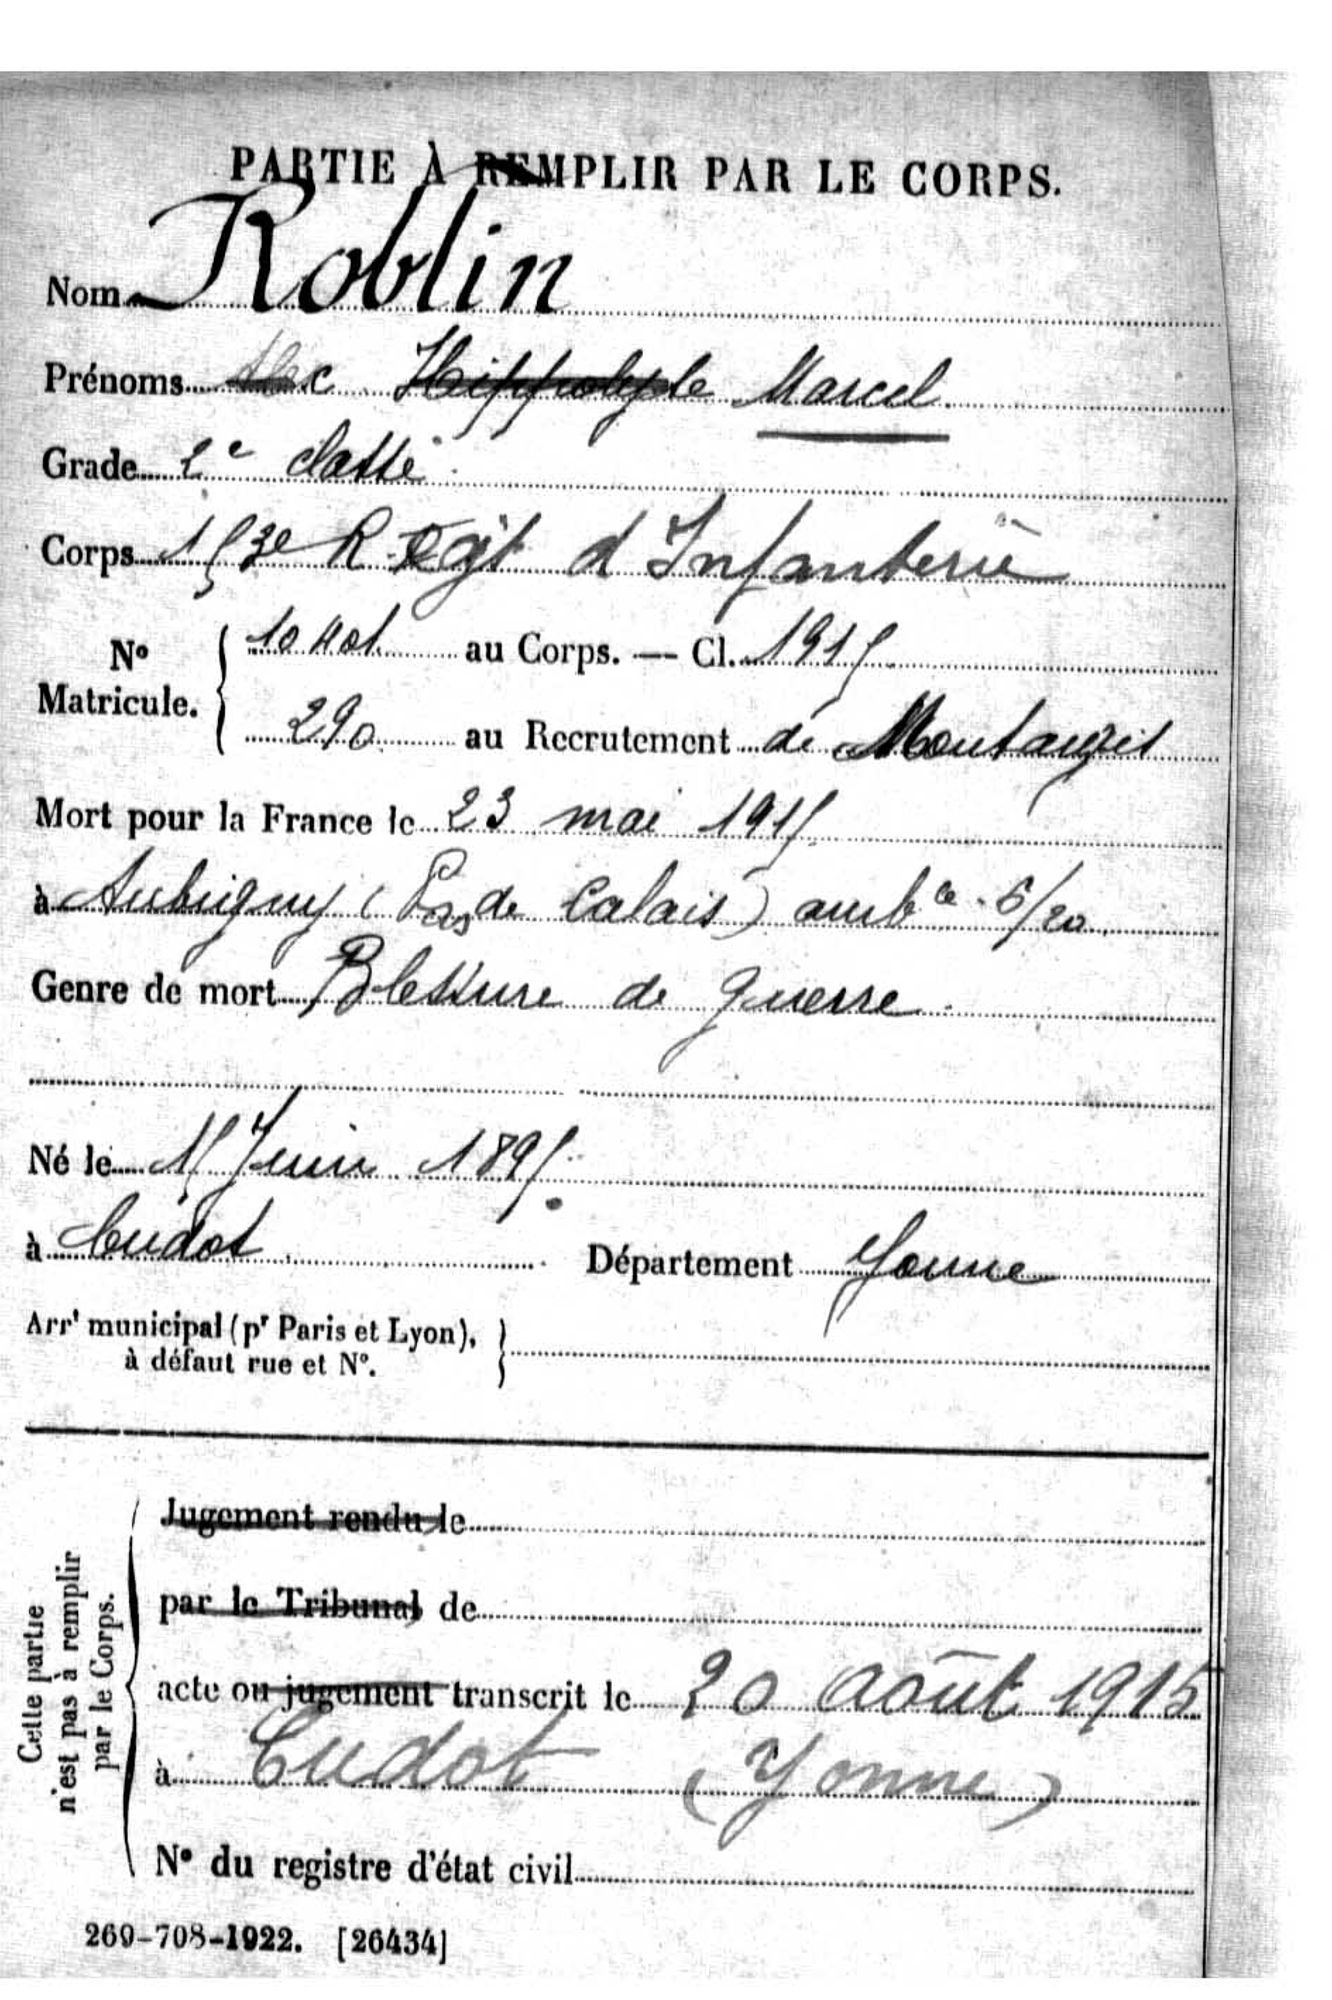 PARTIE À REMPLIR PAR LE CORPS.
Nom Roblin
Prénoms Hippolyte Marcel
Grade 2e classe
Corps 153e R Régt d'Infanterie
No Matricule. { 10401 au Corps. — Cl. 1915
290 au Recrutement de Montargis
Mort pour la France le 23 mai 1915
à Aubigny (Pas de Calais) ambce 6/20
Genre de mort Blessure de guerre
Né le 15 Juin 1895
à Cudot Département Yonne
Arrt municipal (pr Paris et Lyon), }
à défaut rue et No.
Cette partie
n'est pas à remplir
par le Corps.
Jugement rendu le
par le Tribunal de
acte ou jugement transcrit le 20 août 1915
à Cudot (Yonne)
No du registre d'état civil
269-708-1922. [26434]